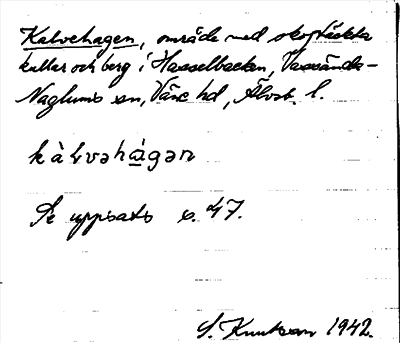 Kalvehagen, område med skogtäckta
kullar och berg i Hasselbacken, Vassända-
Naglums sn, Väne hd, Älvsb. l.
kàlvəhágən
Se uppsats s. 47.
S. Knutsson 1942.